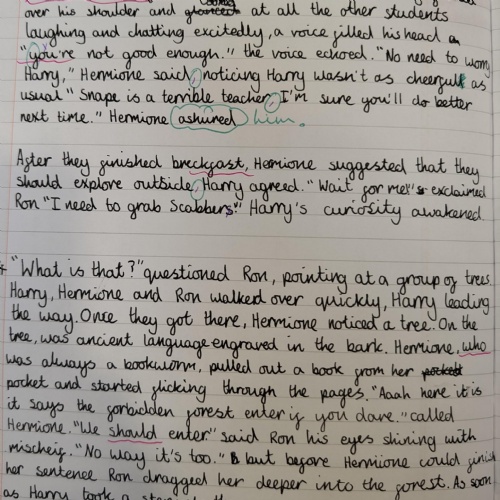 over his shoulder and at all the other students
laughing and chatting excitedly, a voice filled his head
"you're not good enough." the voice echoed. "No need to worry
Harry," Hermione said, noticing Harry wasn't as cheerful as
usual" Snape is a terrible teacher, I'm sure you'll do better
next time." Hermione ashured him.
After they finished breckfast, Hermione suggested that they
should explore outside, Harry agreed. "Wait for me!" exclaimed
Ron "I need to grab Scabbers." Harry's curiosity awakened.
"What is that?" questioned Ron, pointing at a group of trees.
Harry, Hermione and Ron walked over quickly, Harry leading
the way. Once they got there, Hermione noticed a tree. On the
tree, was ancient language engraved in the bark. Hermione, who
was always a bookworm, pulled out a book from her
pocket and started flicking through the pages. "Aaah here it is
it says the forbidden forest enter if you dare." called
Hermione. "We should enter" said Ron his eyes shining with
mischeif. "No way it's too." but before Hermiione could finish
her sentence Ron dragged her deeper into the forest. As soon
as Harry took a